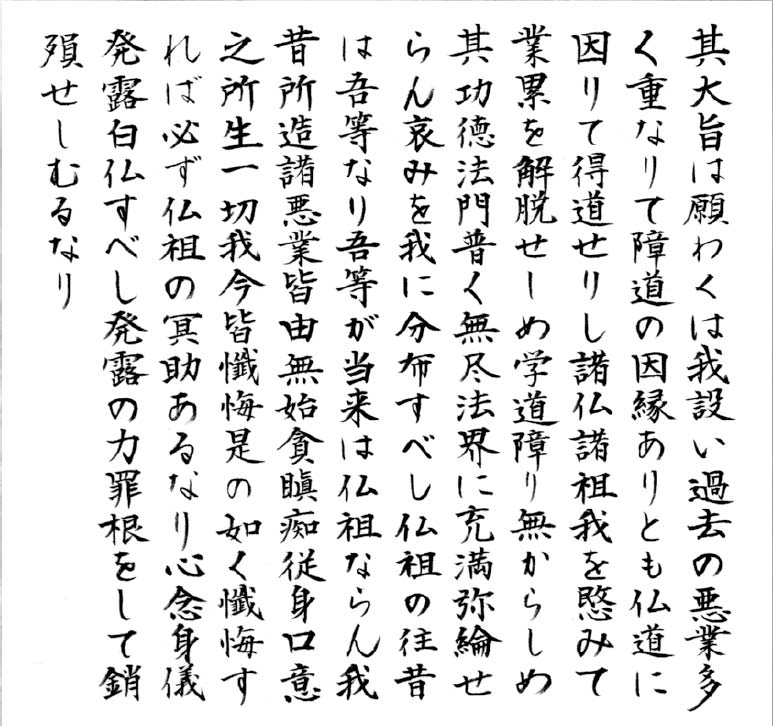 其大旨は願わくは我設い過去の悪業多
く重なりて障道の因縁ありとも仏道に
因りて得道せりし諸仏諸祖我を愍みて
業累を解脱せしめ学道障り無からしめ
其功徳法門普く無尽法界に充満弥綸せ
らん哀みを我に分布すべし仏祖の往昔
は吾等なり吾等が当来は仏祖ならん我
昔所造諸悪業皆由無始貪瞋痴従身口意
之所生一切我今皆懺悔是の如く懺悔す
れば必ず仏祖の冥助あるなり心念身儀
発露白仏すべし発露の力罪根をして銷
殞せしむるなり